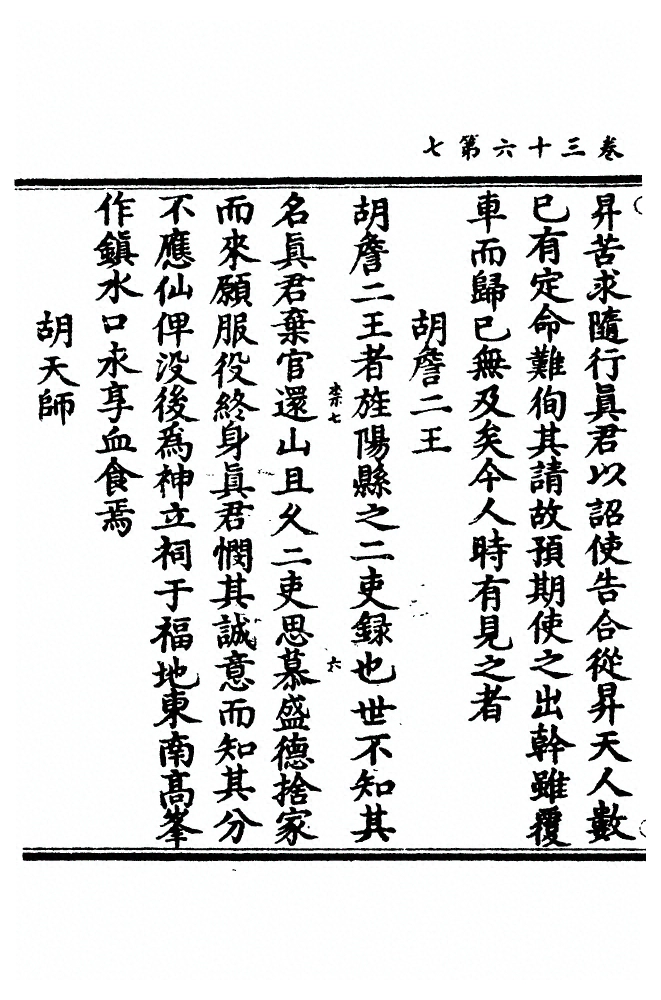 卷三十六第七
昇苦求隨行眞君以詔使告合從昇天人數
已有定命難徇其請故預期使之出幹雖覆
車而歸已無及矣今人時有見之者
胡詹二王
胡詹二王者旌陽縣之二吏録也世不知其
名眞君棄官還山且久二吏思慕盛德捨家
而來願服役終身眞君憫其誠意而知其分
不應仙俾没後爲神立祠于福地東南高峯
作鎭水口永享血食焉
胡天師
六